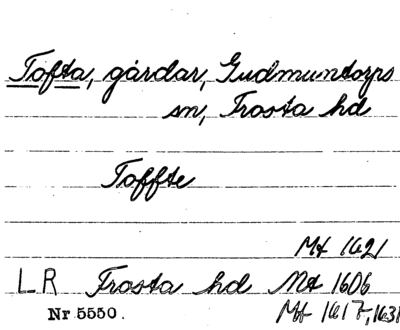 Tofta, gårdar, Gudmuntorps
sn, Frosta hd
Toffte
Mt 1621
LR Frosta hd Mt 1606
Nr 5550. Mt 1617, 1631